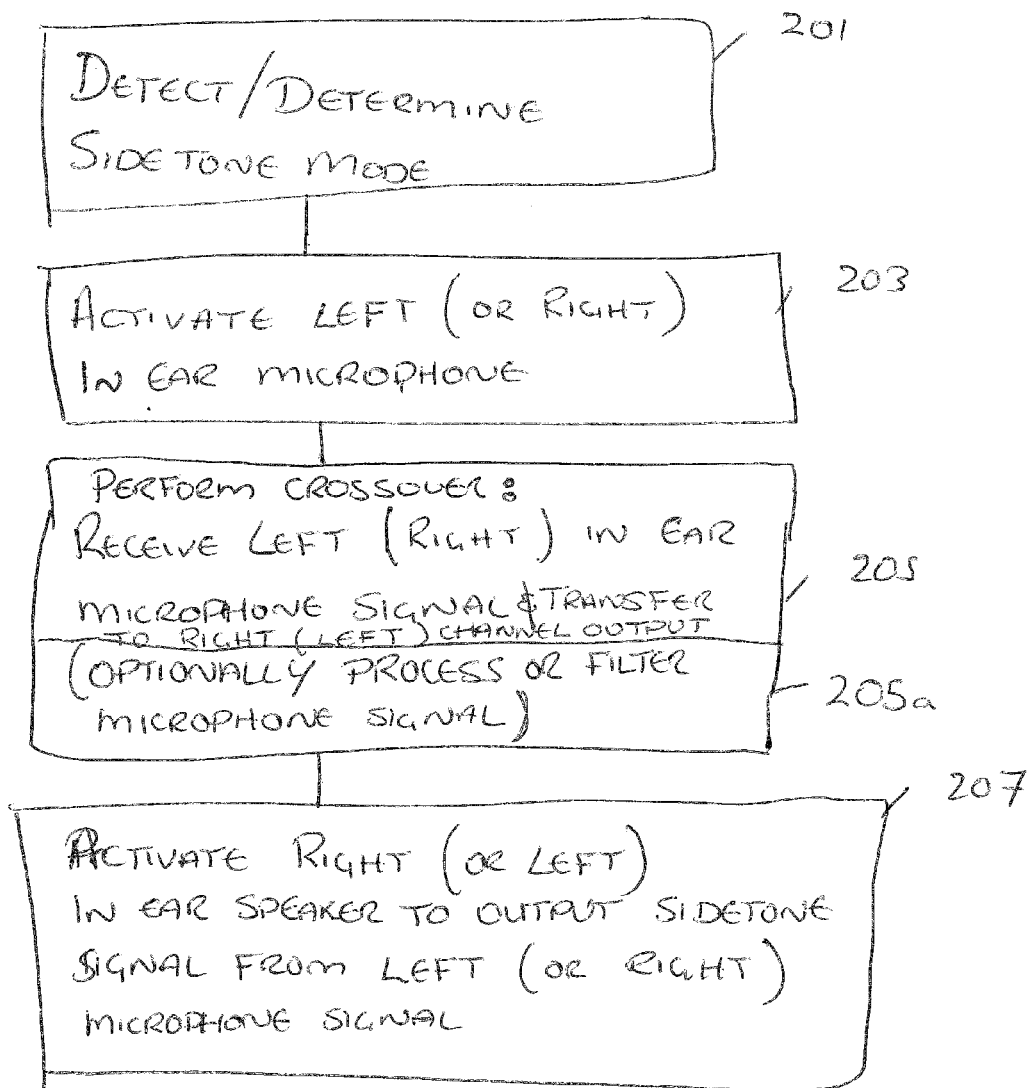 201
DETECT/DETERMINE
SIDETONE MODE
203
ACTIVATE LEFT (OR RIGHT)
IN EAR MICROPHONE
PERFORM CROSSOVER:
RECEIVE LEFT (RIGHT) IN EAR
MICROPHONE SIGNAL & TRANSFER
TO RIGHT (LEFT) CHANNEL OUTPUT
205
(OPTIONALLY PROCESS OR FILTER
MICROPHONE SIGNAL)
205a
207
ACTIVATE RIGHT (OR LEFT)
IN EAR SPEAKER TO OUTPUT SIDETONE
SIGNAL FROM LEFT (OR RIGHT)
MICROPHONE SIGNAL